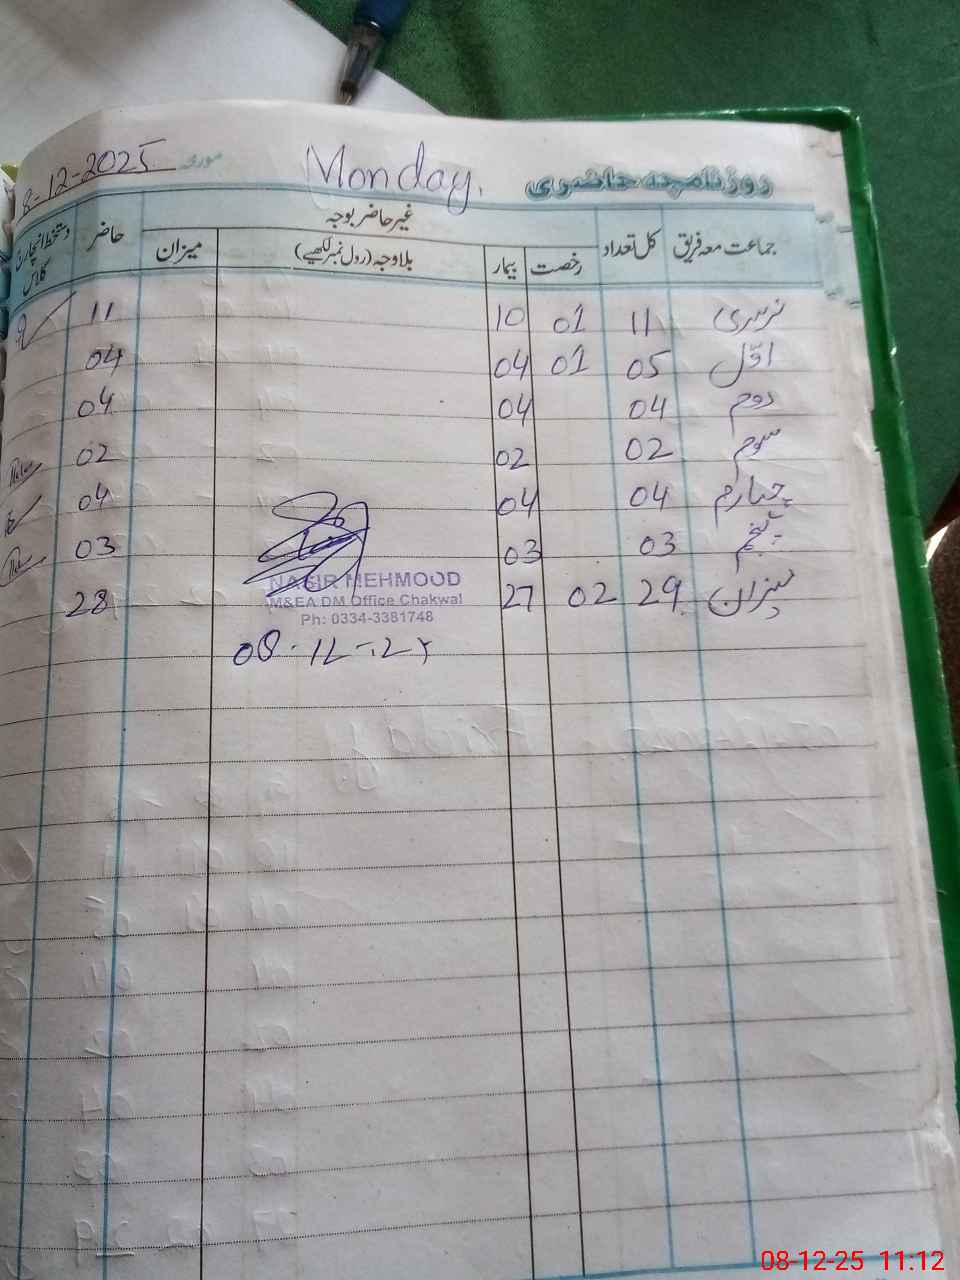 روزنامچہ حاضری Monday. مورخہ 8-12-2025
جماعت معہ فریق کل تعداد غیر حاضر بوجہ حاضر دستخط انچارج کلاس
رخصت بیمار بلاوجہ (رول نمبر لکھیے) میزان
نرسری 11 01 10 11
اوّل 05 01 04 04
دوم 04 04 04
سوم 02 02 02
چہارم 04 04 04
پنجم 03 03 03
میزان 29 02 27 28
NASIR MEHMOOD
M&EA DM Office Chakwal
Ph: 0334-3381748
08-12-25 11:12